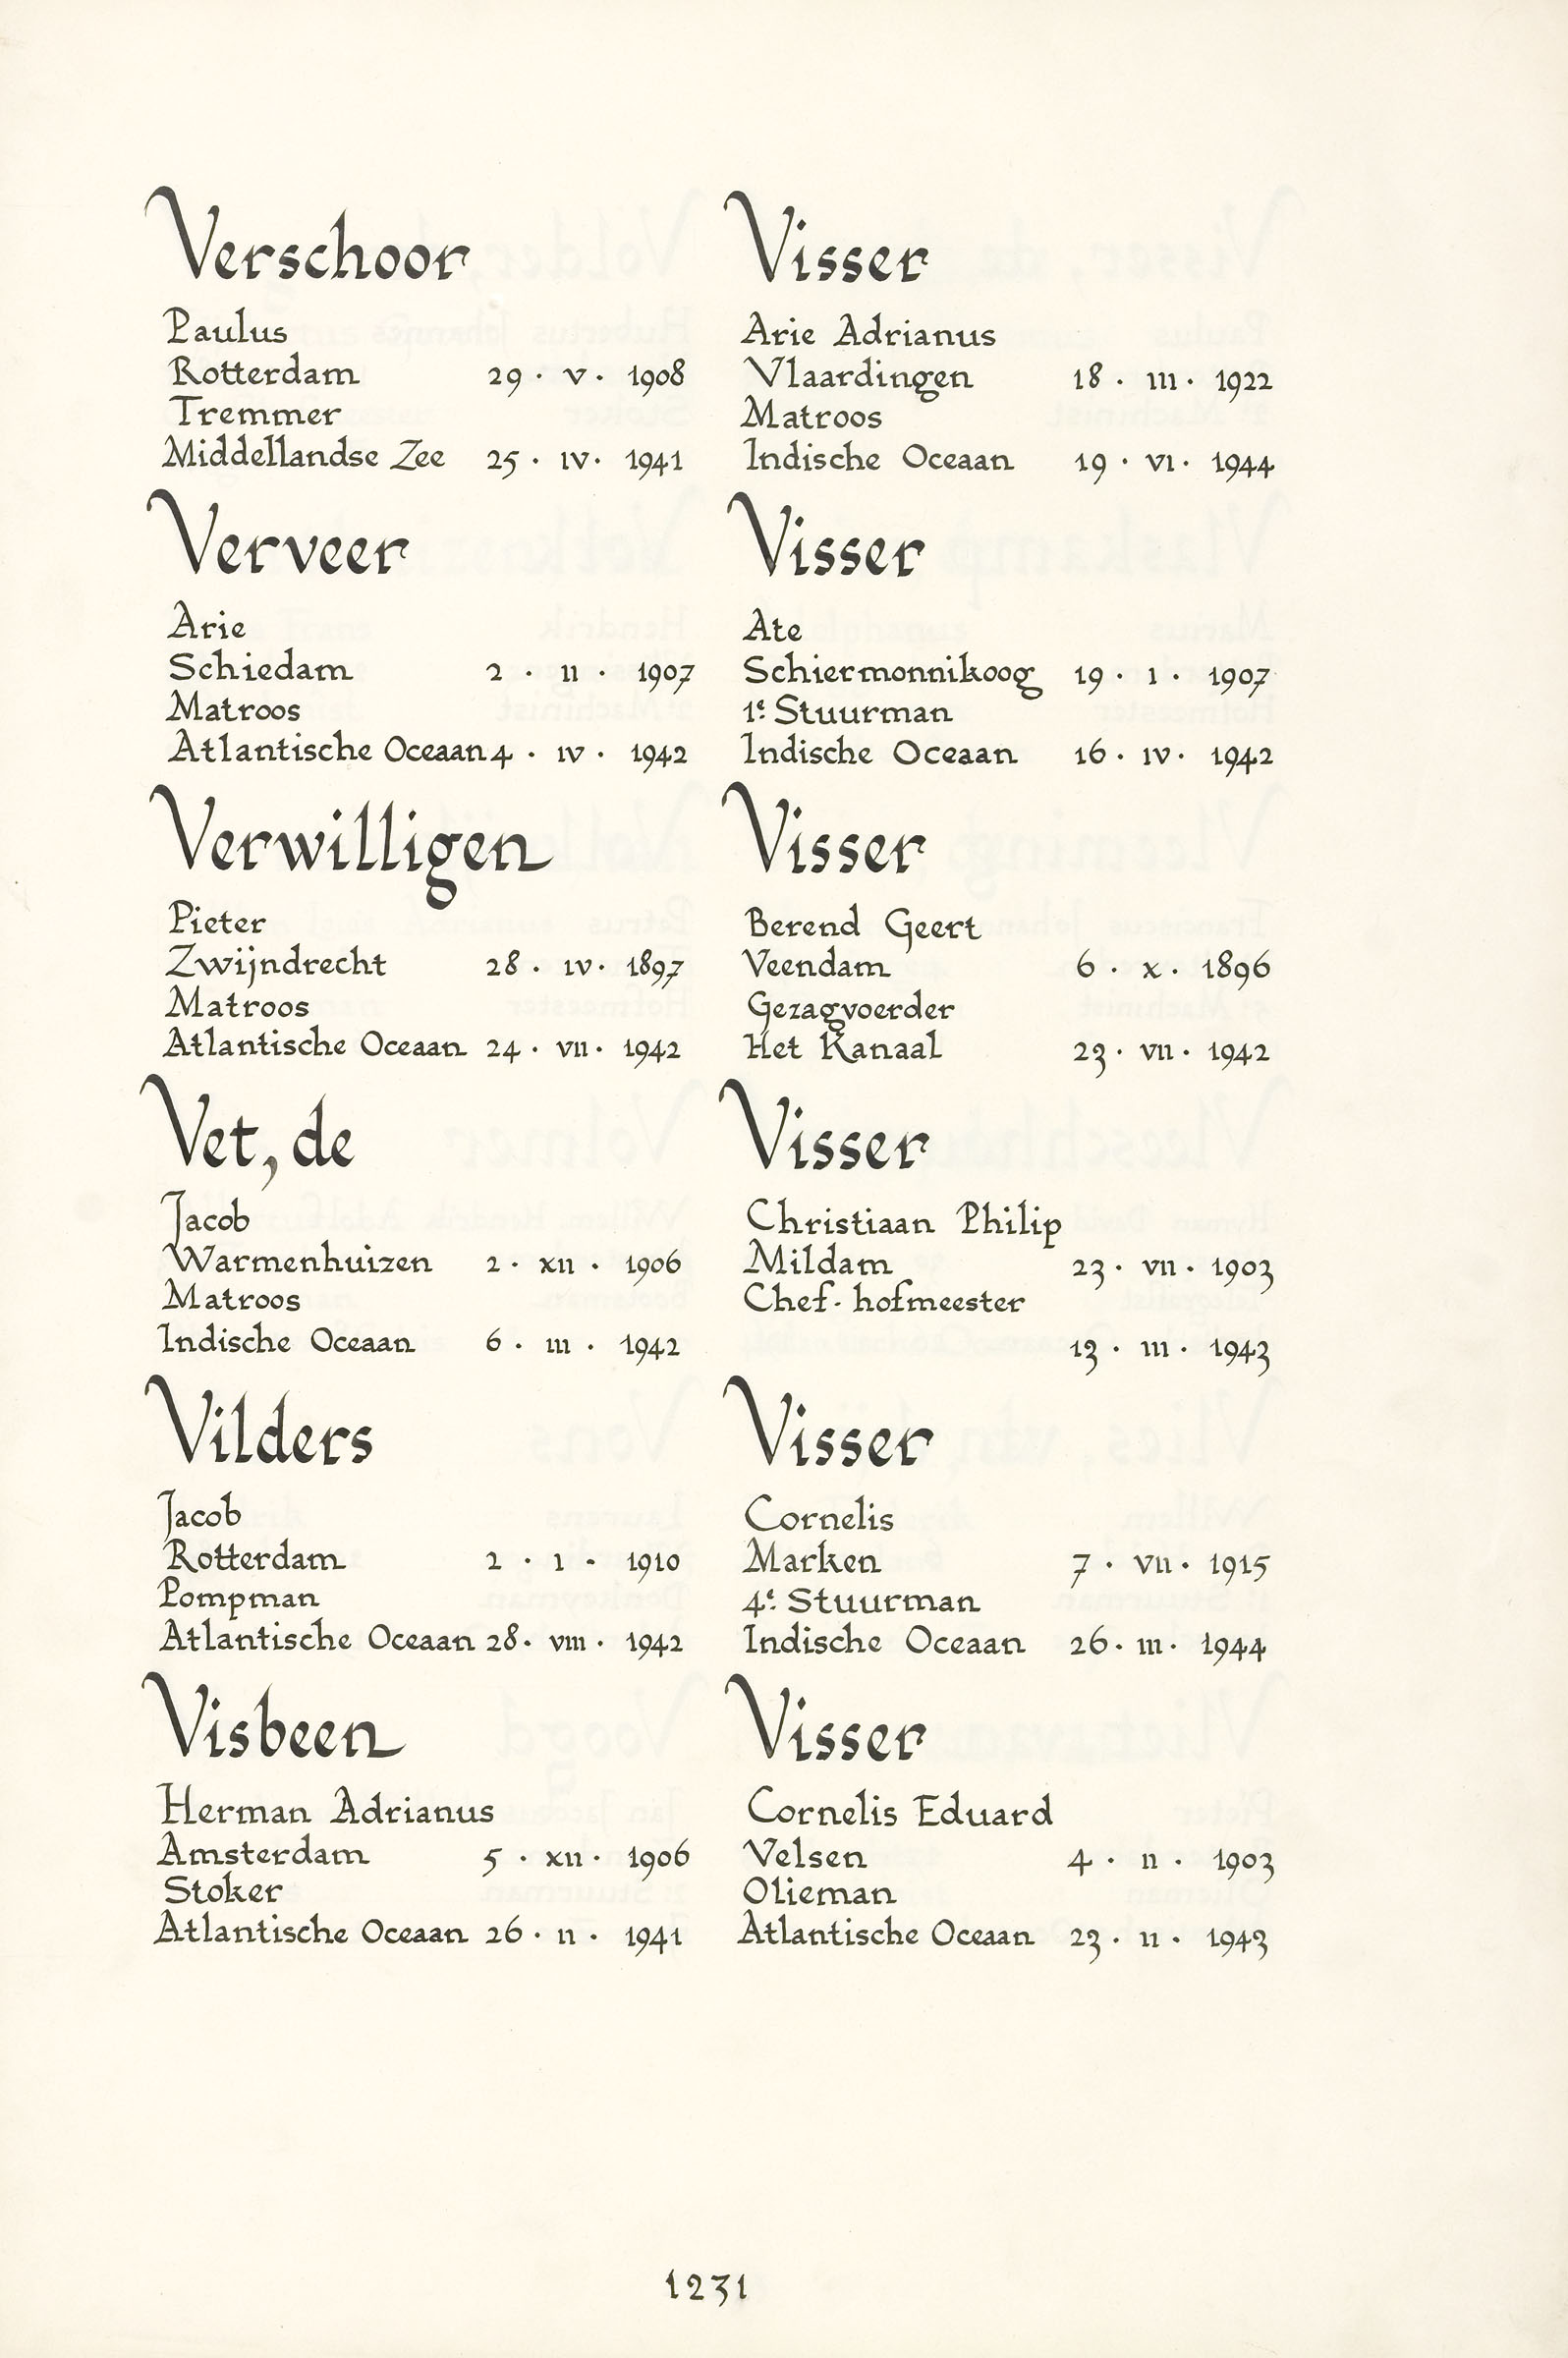 Verschoor
Paulus
Rotterdam 29 · V · 1908
Tremmer
Middellandse Zee 25 · IV · 1941
Verveer
Arie
Schiedam 2 · II · 1907
Matroos
Atlantische Oceaan 4 · IV · 1942
Verwilligen
Pieter
Zwijndrecht 28 · IV · 1897
Matroos
Atlantische Oceaan 24 · VII · 1942
Vet, de
Jacob
Warmenhuizen 2 · XII · 1906
Matroos
Indische Oceaan 6 · III · 1942
Vilders
Jacob
Rotterdam 2 · I · 1910
Pompman
Atlantische Oceaan 28 · VIII · 1942
Visbeen
Herman Adrianus
Amsterdam 5 · XII · 1906
Stoker
Atlantische Oceaan 26 · II · 1941
Visser
Arie Adrianus
Vlaardingen 18 · III · 1922
Matroos
Indische Oceaan 19 · VI · 1944
Visser
Ate
Schiermonnikoog 19 · I · 1907
1e Stuurman
Indische Oceaan 16 · IV · 1942
Visser
Berend Geert
Veendam 6 · X · 1896
Gezagvoerder
Het Kanaal 23 · VII · 1942
Visser
Christiaan Philip
Mildam 23 · VII · 1903
Chef-hofmeester
13 · III · 1943
Visser
Cornelis
Marken 7 · VII · 1915
4e Stuurman
Indische Oceaan 26 · III · 1944
Visser
Cornelis Eduard
Velsen 4 · II · 1903
Olieman
Atlantische Oceaan 23 · II · 1943
1231